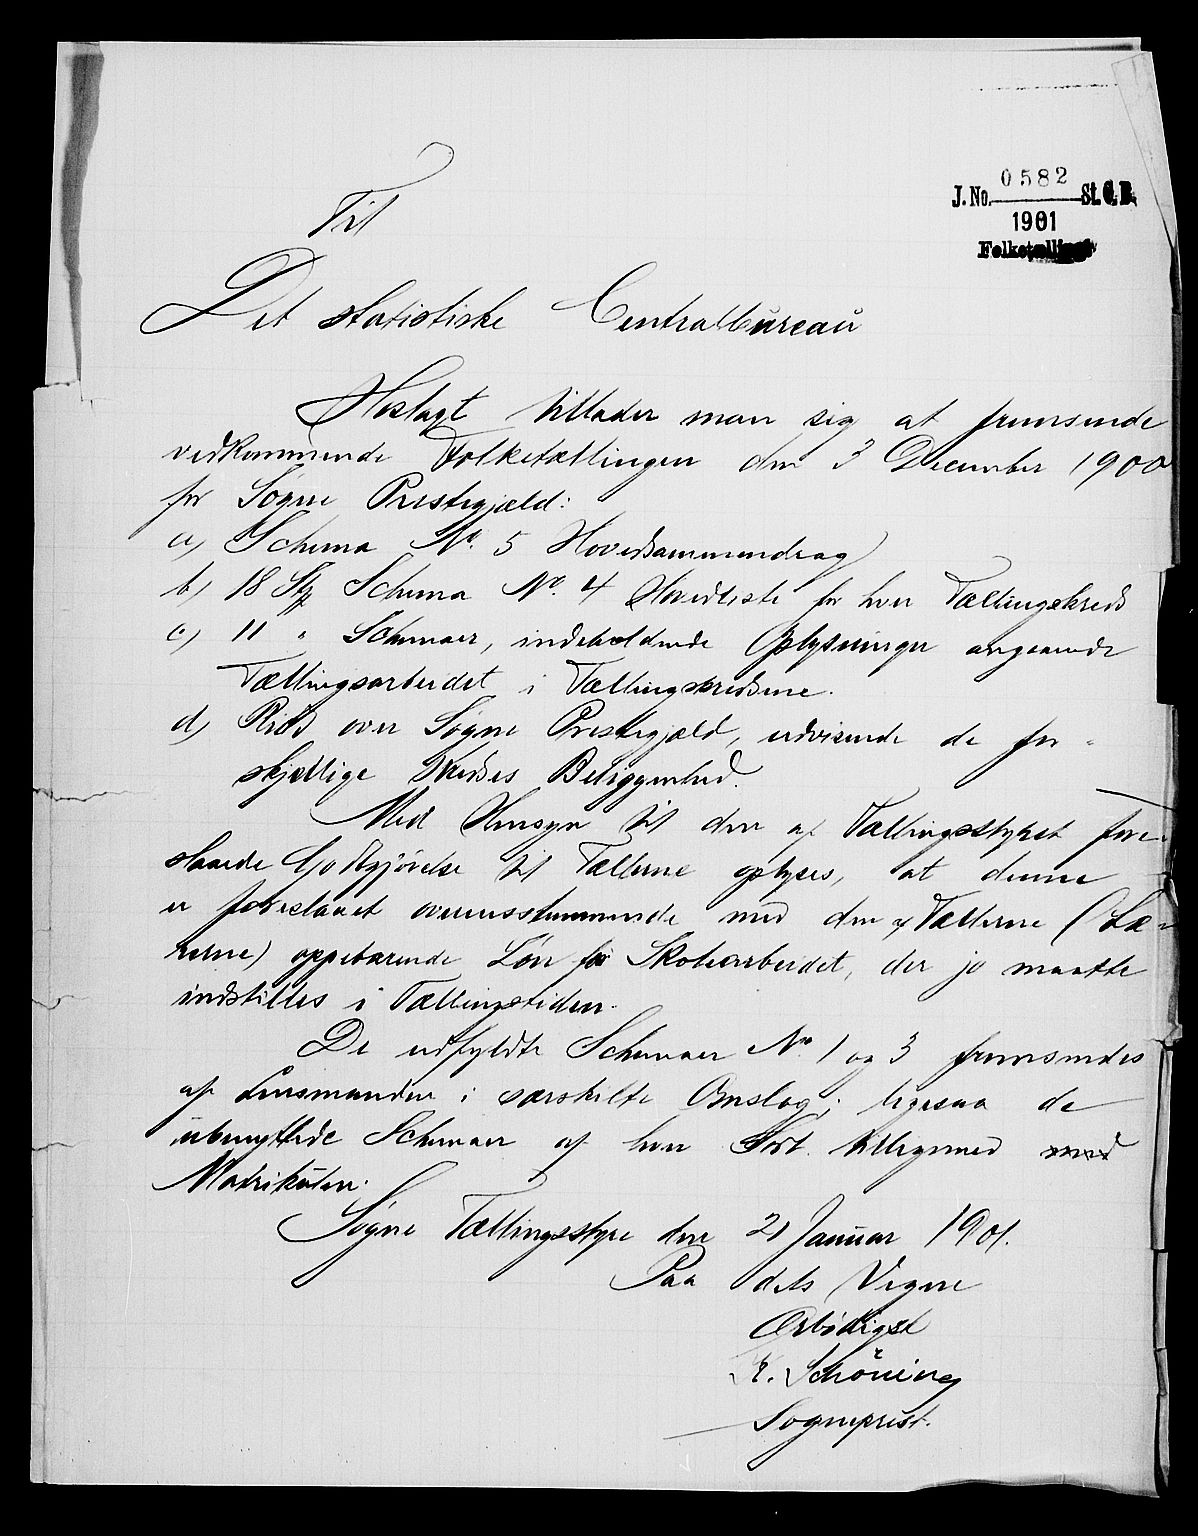 0582
J. No. St. C. B.
1901
Folketælling
Til
Det statistiske Centralbureau
Hoslagt tillader man sig at fremsende
vedkommende Folketællingen den 3 December 1900
for Søgne Prestegjæld:
a) Schema No. 5 Hovedsammendrag
b) 18 Stk Schema No. 4 Hovedliste for hver Tællingskreds
c) 11 " Schemaer, indeholdende Oplysninger angaaende
Tællingsarbeidet i Tællingskredsene.
d) Rids over Søgne Prestegjæld, udvisende de for-
skjellige Kredses Beliggenhed.
Med Hensyn til den af Tællingsstyret fore-
slaaede Godtgjørelse til Tællerne oplyses, at denne
er foreslaaet overensstemmende med den af Tællerne (Læ-
rerne) oppebærende Løn for Skolearbeidet, der jo maatte
indstilles i Tællingstiden.
De udfyldte Schemaer No. 1 og 3 fremsendes
af Lensmanden i særskilte Omslag; ligesaa de
ubenyttede Schemaer af hver Sort tilligemed med
Matrikulen.
Søgne Tællingsstyre den 21 Januar 1901.
Paa dets Vegne
Ærbødigst
K. Schöning
Sogneprest.